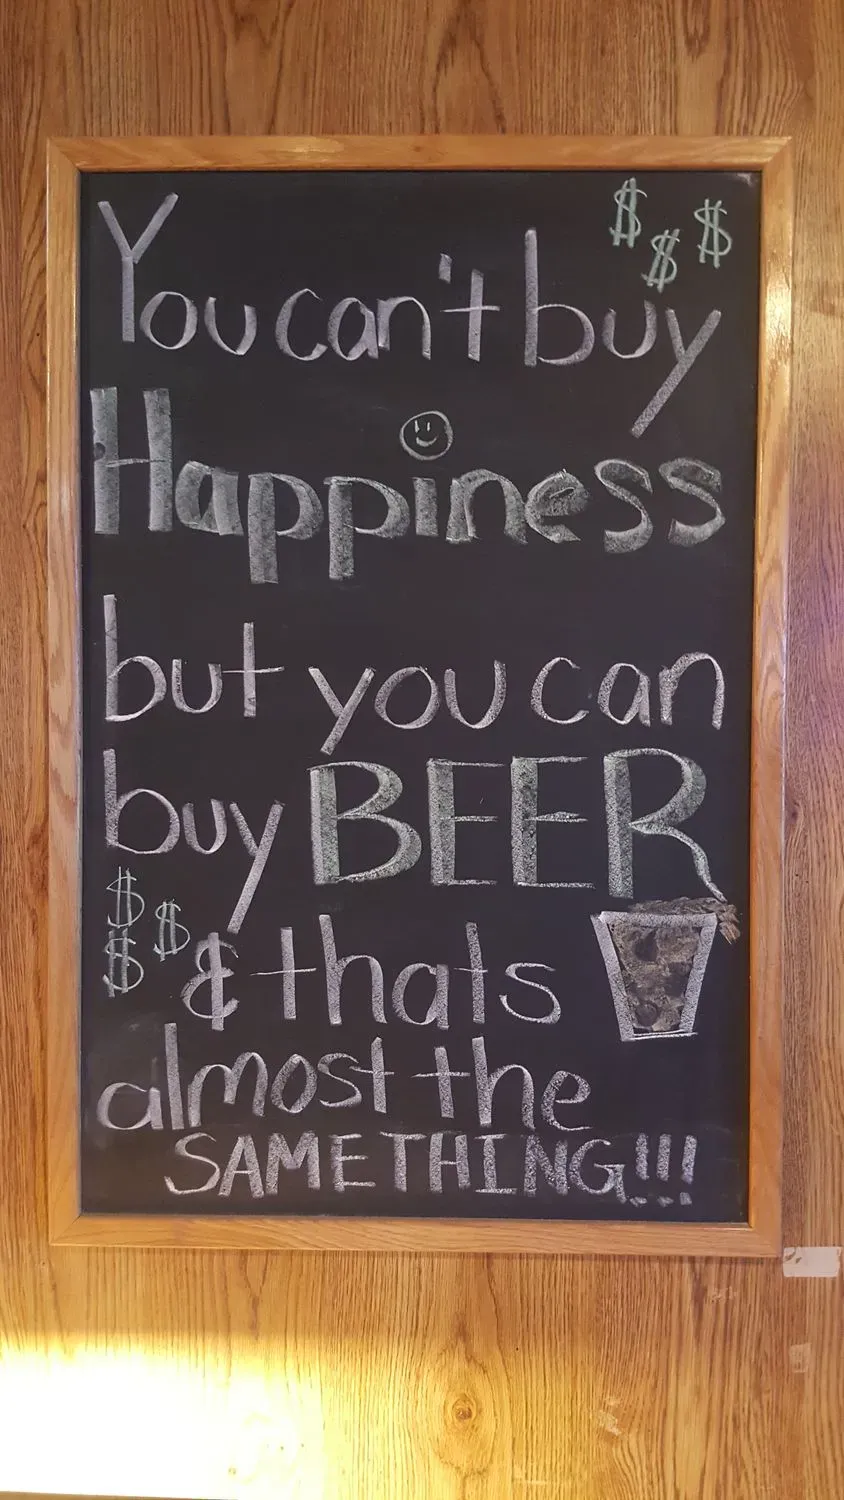 $ $ $
You can't buy
Happiness
but you can
buy BEER
$ $ $
& thats
almost the
SAME THING!!!